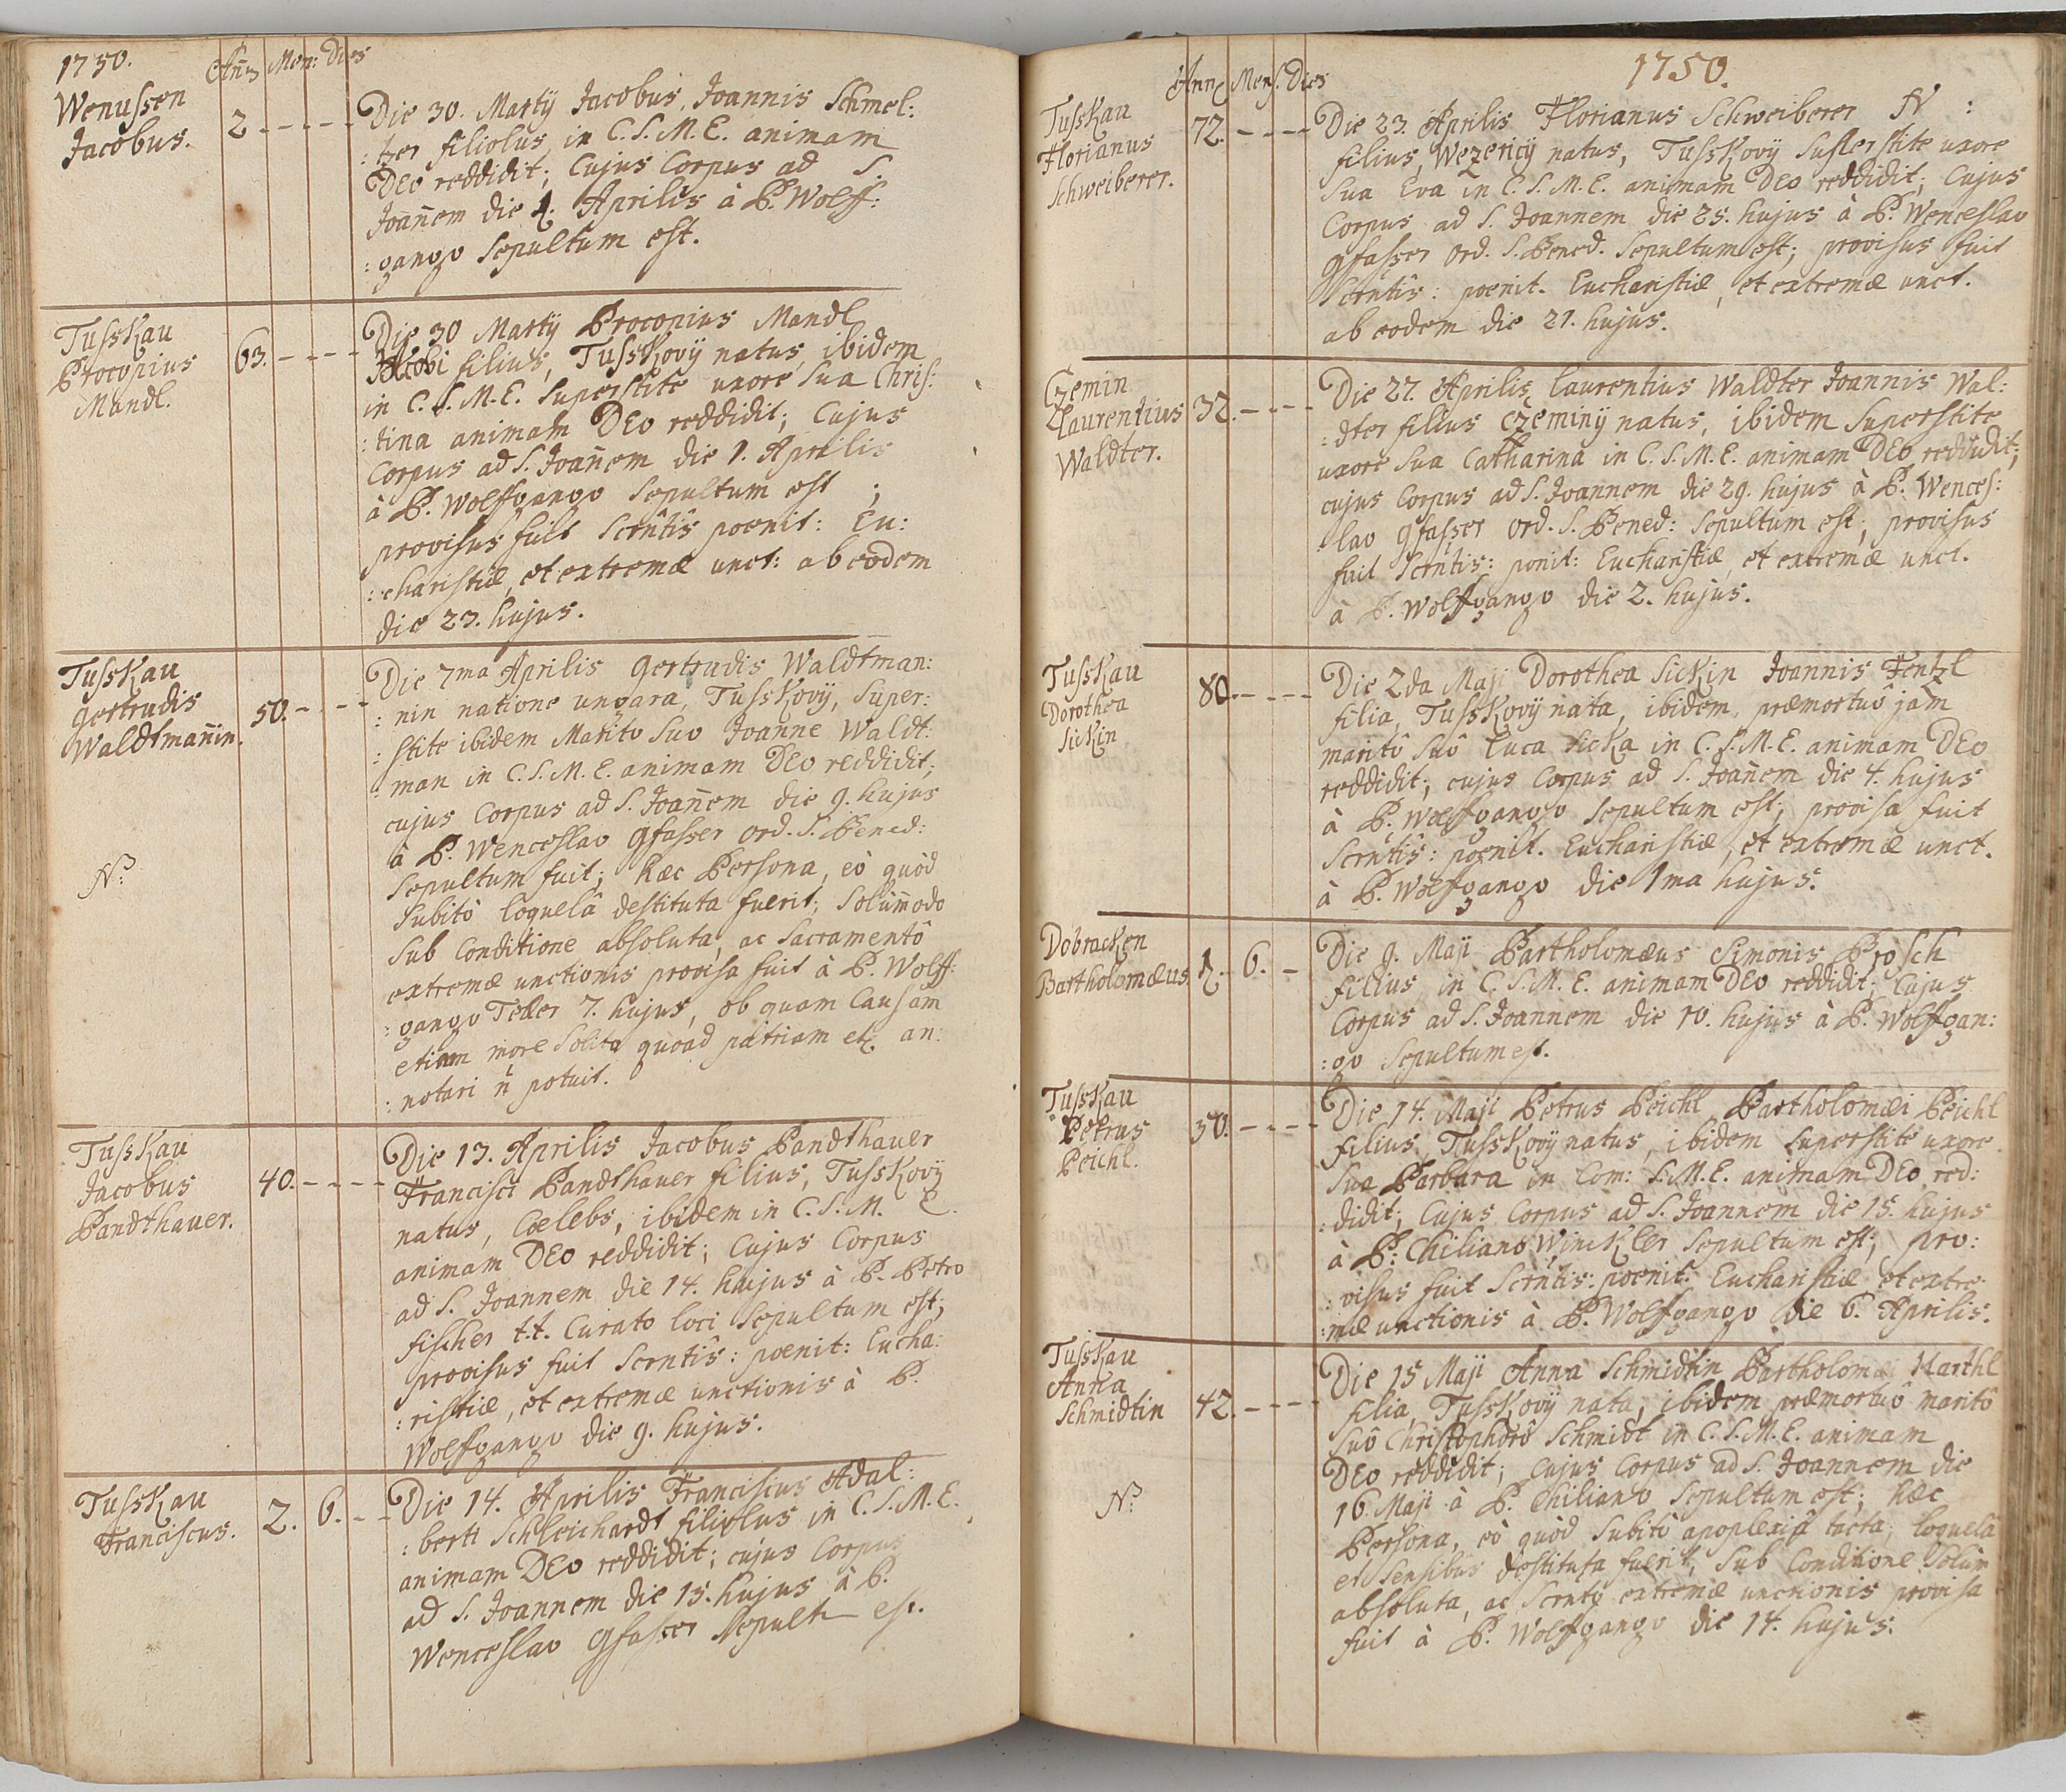 1750.
Anñ Men: Dies
Wenussen
Jacobus.
2 - - - -
Die 30. Martÿ Jacobus, Joannis Schmel:
: tzer filiolus, in C. S. M. E. animam
DEO reddidit; Cujus Corpus ad S.
Joan̄em die 1. Aprilis à P. Wolff:
: gango Sepultum est.
Tusskau
Procopius
Mandl.
63. - - - -
Die 30 Martÿ Procopius Mandl
Jacobi filius, Tusskovÿ natus, ibidem
in C. S. M. E. Superstite uxore Sua Chris:
: tina animam DEO reddidit; Cujus
Corpus ad S. Joan̄em die 1. Aprilis
à P. Wolffgango Sepultum est ;
provisus fuit Scrntîs poenit: Eu:
: charistiæ, et extremæ unct: ab eodem
die 23. hujus.
Tusskau
Gertrudis
Waldtman̄in.
50. - - - -
N:
Die 7ma Aprilis Gertrudis Waldtman:
: nin natione ungara, Tusskovÿ, Super:
: stite ibidem Marito Suo Joanne Waldt:
: man in C. S. M. E. animam DEO reddidit;
cujus Corpus ad S. Joan̄em die 9. hujus
à P. Wenceslao Gfasser Ord. S. Bened:
Sepultum fuit; hæc Persona, eò quòd
Subitò loquelâ destituta fuerit, Solum̄odo
Sub Conditione absoluta, ac Sacramentô
extremæ unctionis provisa fuit à P. Wolff:
: gango Teller 7. hujus, ob quam Causam
etiam more Solito quoad patriam etc an:
: notari n̄ potuit.
Tusskau
Jacobus
Pandthauer.
40. - - - -
Die 13. Aprilis Jacobus Pandthauer
Francisci Pandthauer filius, Tusskovÿ
natus, Cœlebs, ibidem in C. S. M. E.
animam DEO reddidit; Cujus Corpus
ad S. Joannem die 14. hujus à P. Petro
Fischer t.t. Curato loci Sepultum est;
provisus fuit Scrntîs: poenit: Eucha:
: ristiæ, et extremæ unctionis à P.
Wolffgango die 9. hujus.
Tusskau
Franciscus.
2. 6. - -
Die 14. Aprilis Franciscus Adal:
: berti Schleichardt filiolus in C. S. M. E.
animam DEO reddidit; cujus Corpus
ad S. Joannem die 15. hujus à P.
Wenceslao Gfasser Sepult est.
1750.
Anñ Mens. Dies
Tusskau
Florianus
Schweiberer.
72. - - - -
Die 23. Aprilis Florianus Schweiberer N :
filius, Wezericÿ natus, Tusskovÿ Superstite uxore
Sua Eva in C. S. M. E. animam DEO reddidit; Cujus
Corpus ad S. Joannem die 25. hujus à P. Wenceslao
Gfasser Ord. S. Bened. Sepultum est; provisus fuit
Scrntîs: poenit. Eucharistiæ, et extremæ unct.
ab eodem die 21. hujus.
Czemin
Laurentius
Waldter.
32. - - - -
Die 27. Aprilis Laurentius Waldter Joannis Wal:
: dter filius Czeminÿ natus, ibidem Superstite
uxore Sua Catharina in C. S. M. E. animam DEO reddidit;
cujus Corpus ad S. Joannem die 29. hujus à P. Wences:
: lao Gfasser Ord. S. Bened: Sepultum est; provisus
fuit Scrntîs: ponit: Eucharistiæ, et extremæ unct.
à P. Wolffgango die 2. hujus.
Tusskau
Dorothea
Sickin
80. - - - -
Die 2da Maji Dorothea Sickin Joannis Fentzl
filia, Tusskovÿ nata, ibidem, præmortuô jam
maritô Suô Luca Sicka in C. S. M. E. animam DEO
reddidit; cujus Corpus ad S. Joan̄em die 4. hujus
à P. Wolffgango Sepultum est; provisa fuit
Scrntîs: poenit. Eucharistiæ, et extremæ unct.
à P. Wolffgango die 1ma hujus.
Dobracken
Bartholomæus.
1. 6. -
Die 9. Maji Bartholomæus Simonis Prosch
filius in C. S. M. E. animam DEO reddidit; Cujus
Corpus ad S. Joannem die 10. hujus à P. Wolffgan:
: go Sepultum est.
Tusskau
Petrus
Peichl.
50. - - - -
Die 14. Maji Petrus Peichl Bartholomæi Peichl
filius, Tusskovÿ natus, ibidem Superstite uxore
Sua Barbara in Com: S. M. E. animam DEO red:
: didit; Cujus Corpus ad S. Joannem die 15. hujus
à P. Chiliano Winckller Sepultum est; pro:
: visus fuit Scrntîs: poenit: Eucharistiæ et extre:
: mæ unctionis à P. Wolffgango die 6. Aprilis.
Tusskau
Anna
Schmidtin
42. - - - -
N:
Die 15 Maji Anna Schmidtin Bartholomæi Harthl
filia, Tusskovÿ nata, ibidem præmortuô maritô
Suô Christophorô Schmidt in C. S. M. E. animam
DEO reddidit; Cujus Corpus ad S. Joannem die
16 Maji à P. Chiliano Sepultum est; hæc
Persona, eò quòd Subitò apoplexiâ tacta, loquelâ
et Sensibus destituta fuerit, Sub Conditione Solùm
absoluta, ac Scrntô extremæ unctionis provisa
fuit à P. Wolffgango die 14. hujus.